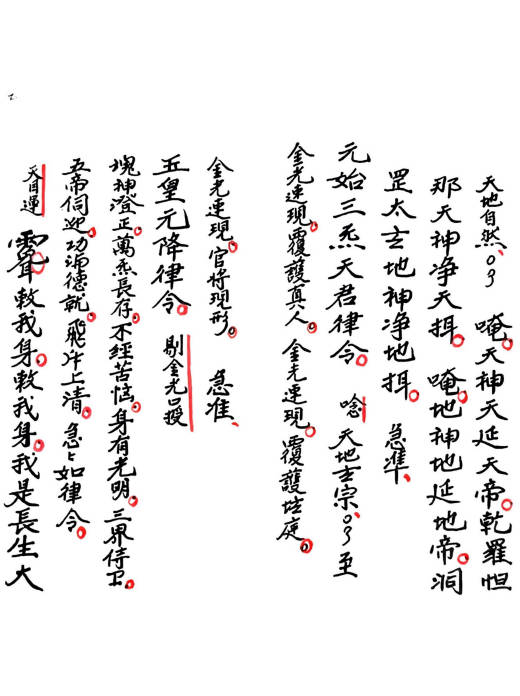 天地自然、〇3 唵。天神天延天帝。乾羅怛
那天神净天揖。唵。地神地延地帝。洞
罡太玄地神净地揖。急準、
元始三炁天君律令。唸 天地玄宗、〇3至
金光速現。覆護真人。金光速現。覆護坛庭。
金光速現。官将现形。急准、
五皇元降律令。剔金光口授
塊神澄正。萬炁長存。不經苦恼。身有光明。三界侍卫。
五帝伺迎。功满德就。飛升上清。急々如律令。
天目運 敕我身。敕我身。我是長生大